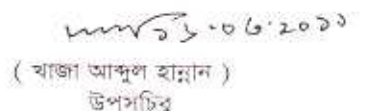 ১৬.০৬.২০১১
( খাজা আব্দুল হান্নান )
উপসচিব